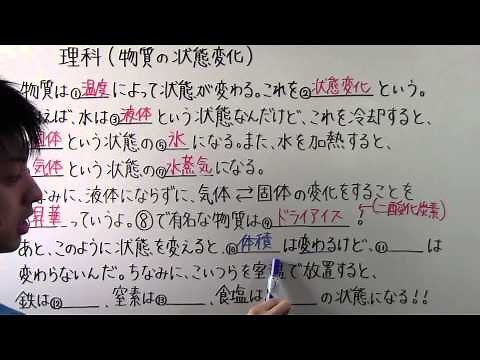 理科(物質の状態変化)
物質は①温度によって状態が変わる。これを②状態変化という。
えば、水は③液体という状態なんだけど、これを冷却すると、
固体という状態の⑤氷になる。また、水を加熱すると、
気体という状態の⑦水蒸気になる。
なみに、液体にならずに、気体⇄固体の変化をすることを
昇華っていうよ。⑧で有名な物質は⑨ドライアイス!(二酸化炭素)
あと、このように状態を変えると、⑩体積は変わるけど、⑪は
変わらないんだ。ちなみに、こいつらを室で放置すると、
鉄は⑫、窒素は⑬、食塩はの状態になる!!